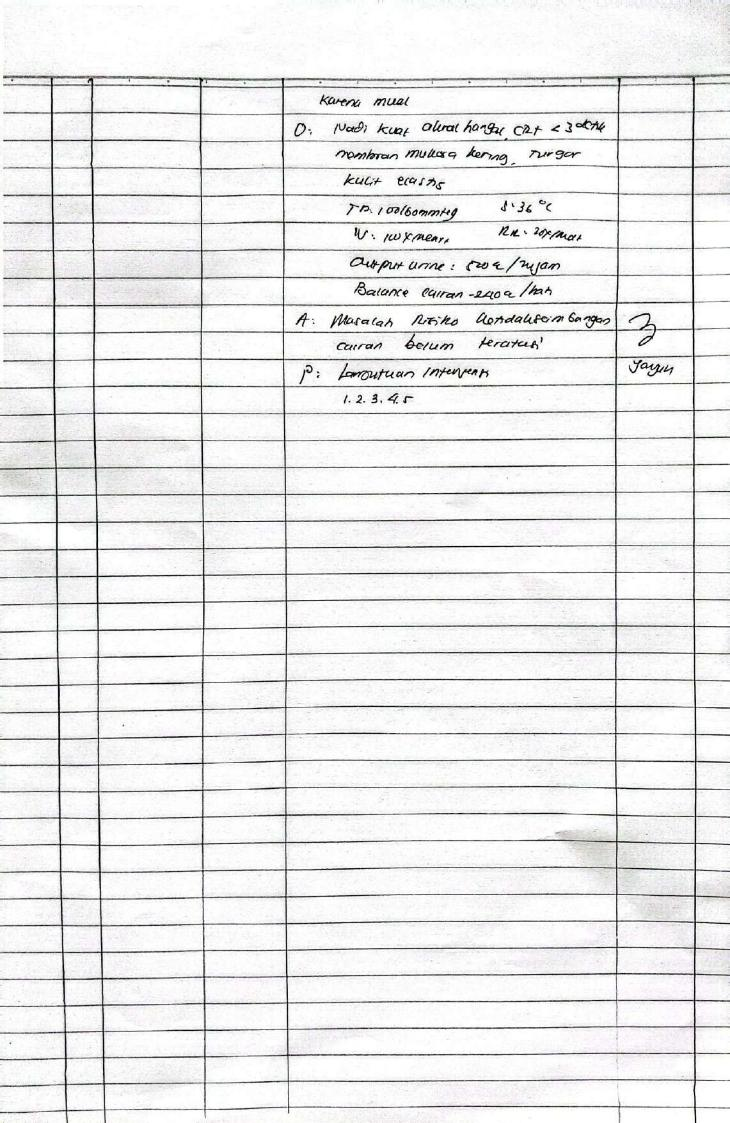 karena mual
O: Nadi kuat akral hangat, CRT < 3 detik
mambran mukosa kering, Turgor
kulit elastis
TD: 100/60mmHg S: 36 °C
N: 100x/menit RR: 20x/menit
Output urine: 520 cc/24jam
Balance cairan -240 cc/hari
A: Masalah Risiko ketidakseimbangan
cairan belum teratasi
P: Lanjutkan Intervensi
1. 2. 3. 4. 5